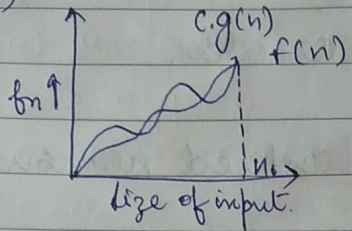 c.g(n)
f(n)
fn↑
n₀
Size of input.